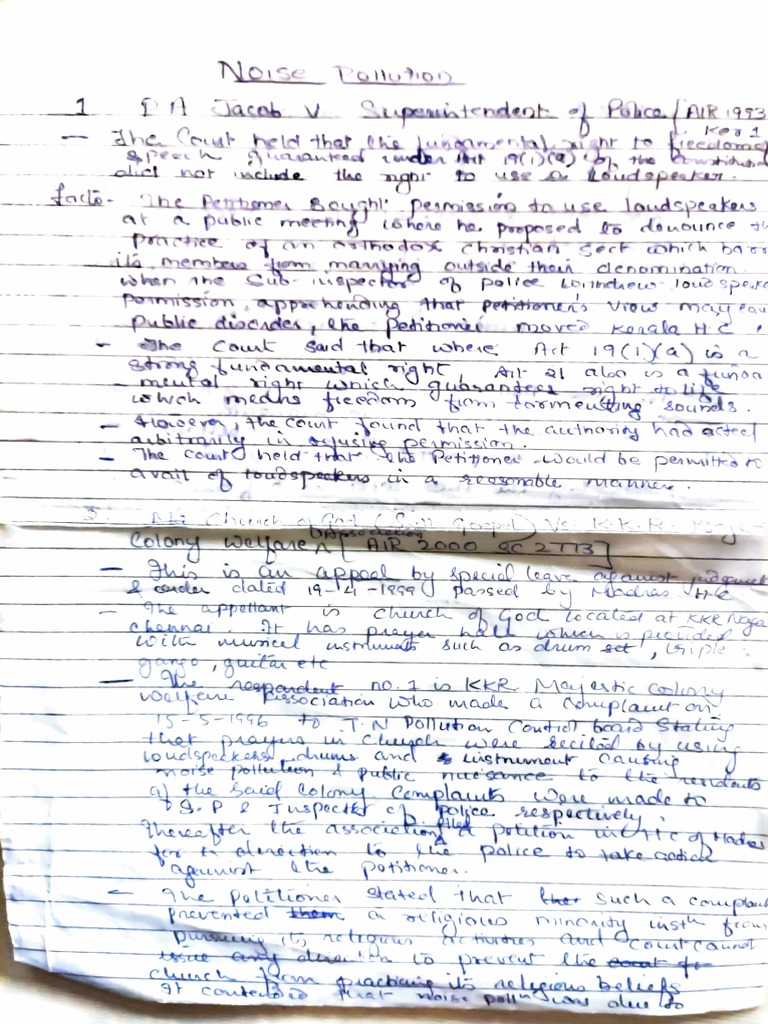 Noise Pollution
1 P A Jacob V. Superintendent of Police [AIR 1993
Ker 1
— The Court held that the fundamental right to freedom of
speech guaranteed under Art 19(1)(a) of the constitution
did not include the right to use a loudspeaker.
facts - The Petitioner sought permission to use loudspeakers
at a public meeting where he proposed to denounce th
practice of an orthodox Christian sect which barr
its members from marrying outside their denomination.
when the Sub-inspector of police withdrew loudspeak
permission, apprehending that Petitioner's view may cau
public disorder, the petitioner moved Kerala H.C.
- The Court said that where Art 19(1)(a) is a
strong fundamental right Art 21 also is a funda
mental right which guarantees right to life
which means freedom from tormenting sounds.
— However, the court found that the authority had acted
arbitrarily in refusing permission.
— The Court held that the Petitioner would be permitted to
avail of loudspeakers in a reasonable manner.
Church of God (Full Gospel) Vs. K.K.R. Majes
Colony Welfare Association [AIR 2000 SC 2773]
— This is an appeal by special leave against judgment
& order dated 19-4-1999 passed by Madras H-C
— The appellant is church of God located at KKR Naga
Chennai. It has prayer hall which is provided
with musical instruments such as drum set, triple
gango, guitar etc
— The respondent no. 1 is KKR Majestic Colony
Welfare Association who made a complaint on
15-5-1996 to T.N Pollution Control board stating
that prayers in Church were recited by using
loudspeakers, drums and instrument causing
noise pollution & public nuisance to the residents
of the said Colony Complaints were made to
S.P & Inspector of police respectively.
Thereafter the association filed petition in H C of Madras
for a direction to the police to take action
against the petitioner.
— The Petitioner stated that such a complaint
prevented a religious minority instn from
pursuing its religious activities and court cannot
issue any direction to prevent the
church from practicing its religious beliefs
It contended that noise pollution was due to